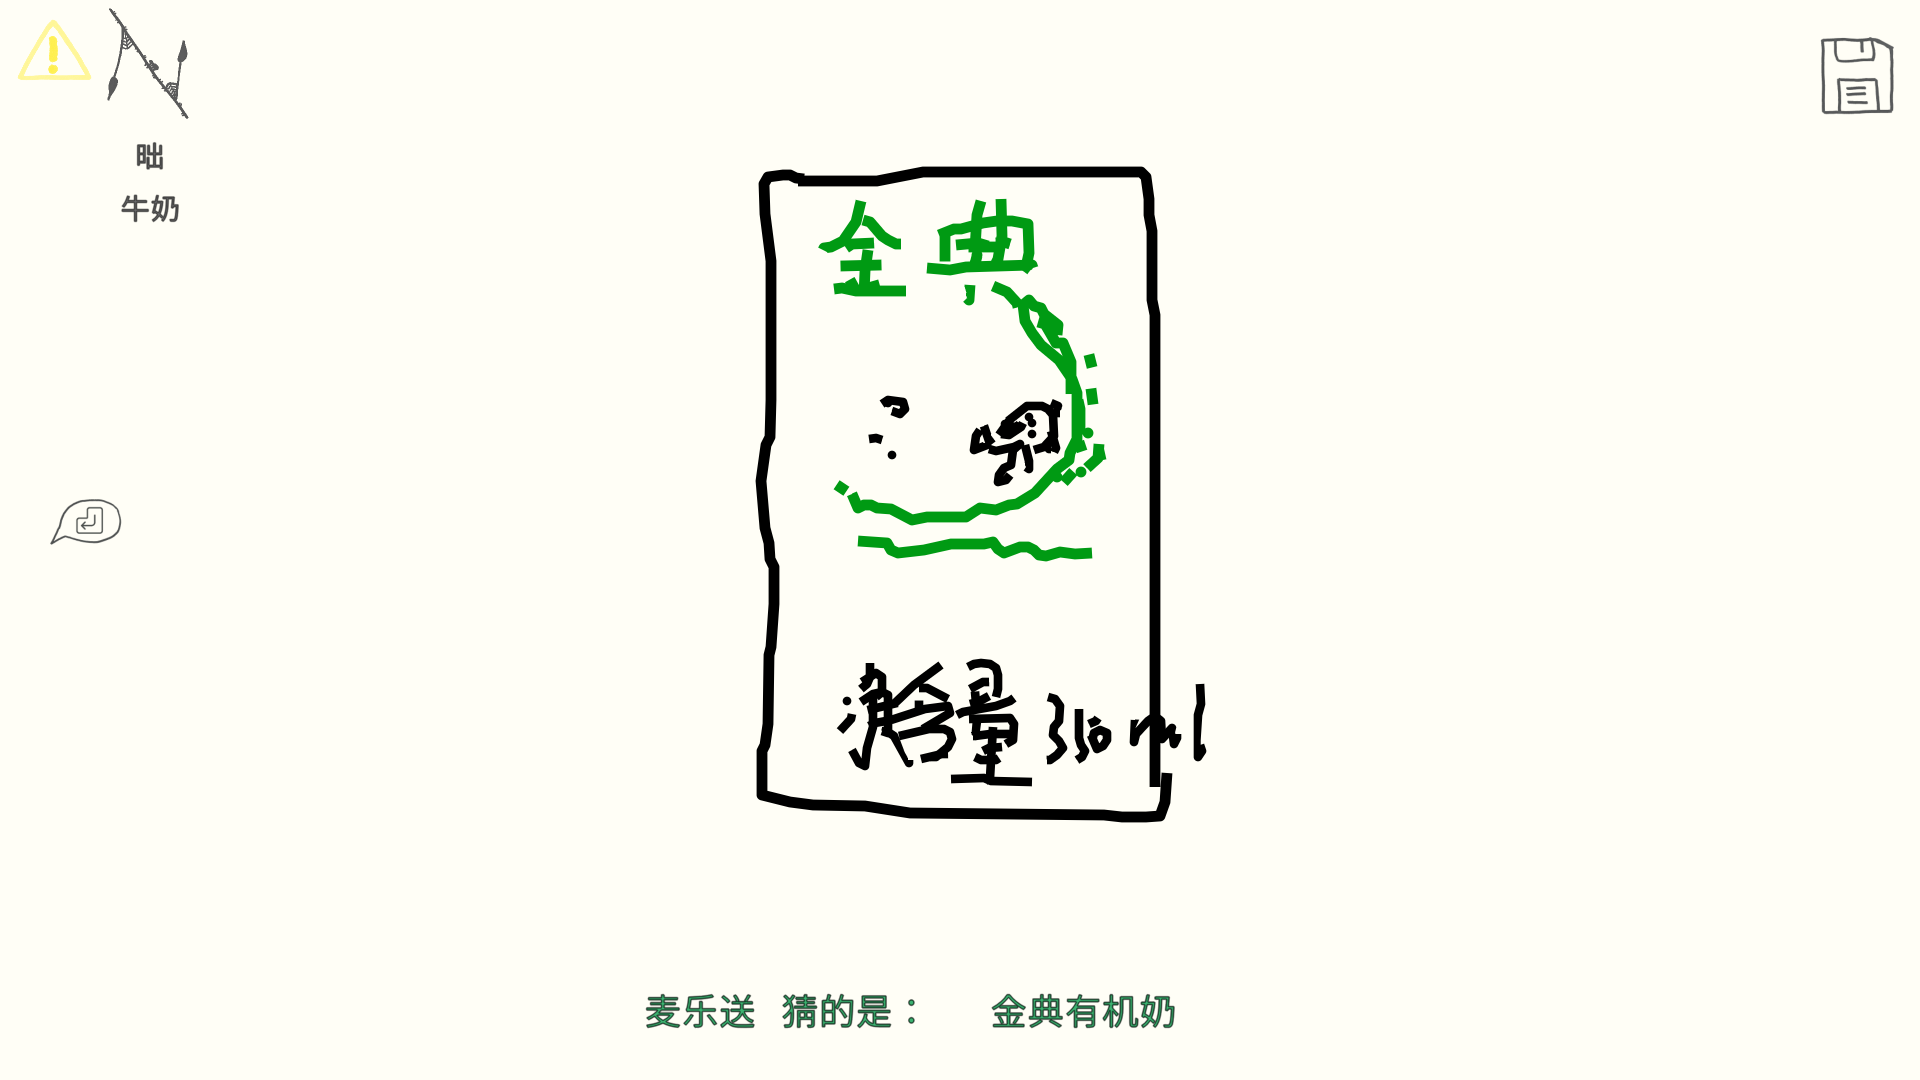 昢
牛奶
金典
净含量 310 ml
麦乐送 猜的是： 金典有机奶